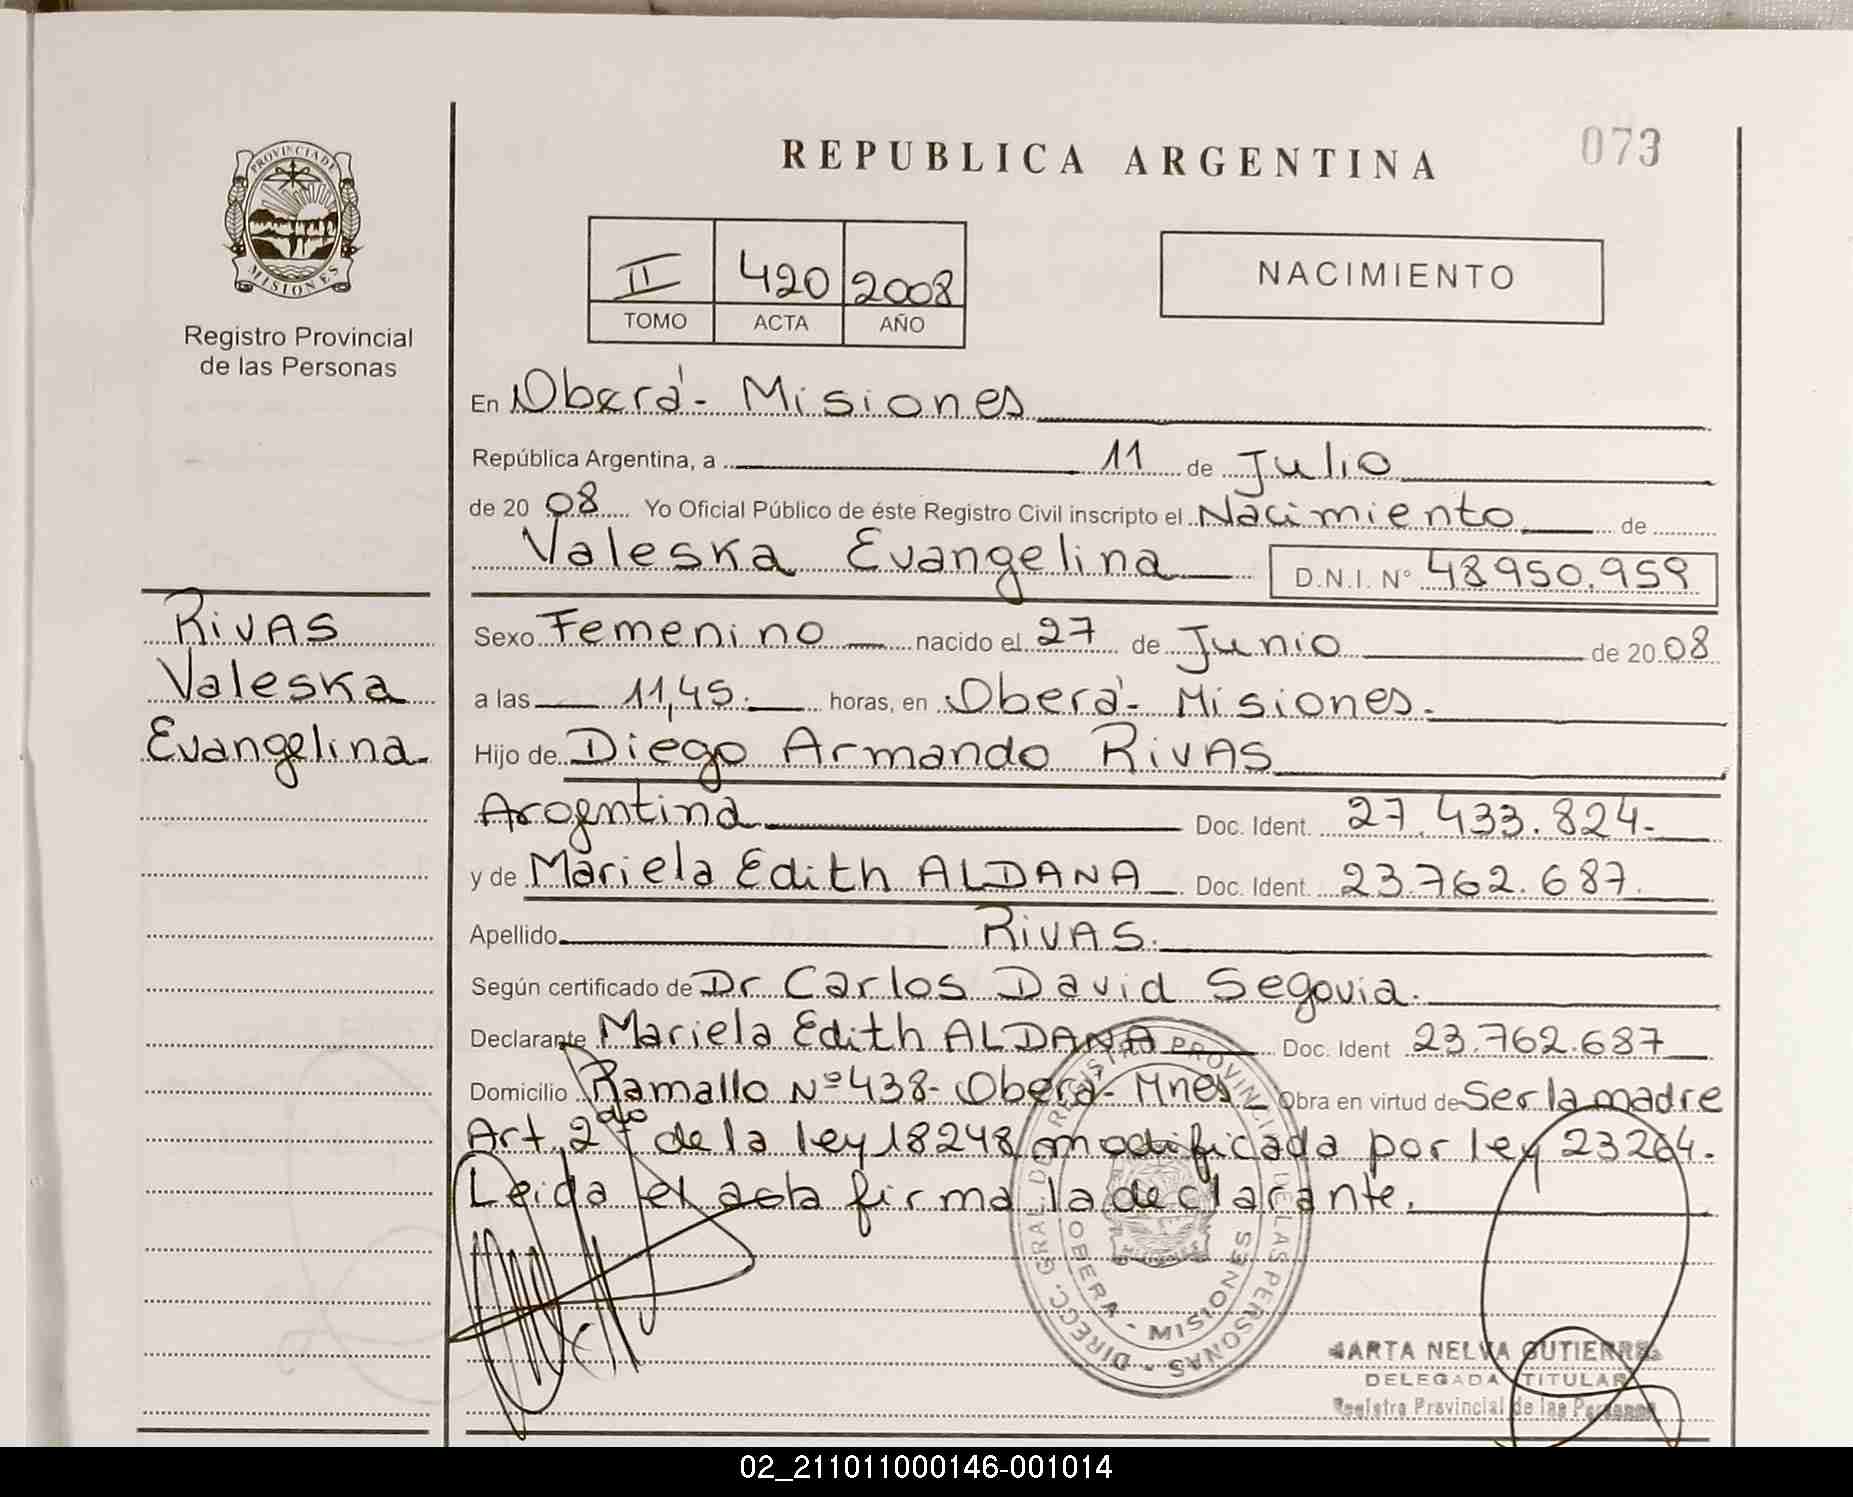 073
REPUBLICA ARGENTINA
PROVINCIA DE
MISIONES
Registro Provincial
de las Personas
II 420 2008
TOMO ACTA AÑO
NACIMIENTO
En Oberá - Misiones
República Argentina, a 11 de Julio
de 20 08 Yo Oficial Público de éste Registro Civil inscripto el Nacimiento de
Valeska Evangelina D.N.I. N° 48950.959
RIVAS
Valeska
Evangelina
Sexo Femenino nacido el 27 de Junio de 20 08
a las 11,45. horas, en Oberá - Misiones.
Hijo de Diego Armando RIVAS
Argentina Doc. Ident. 27.433.824.
y de Mariela Edith ALDANA Doc. Ident. 23.762.687.
Apellido RIVAS.
Según certificado de Dr Carlos David Segovia.
Declarante Mariela Edith ALDANA Doc. Ident 23.762.687
Domicilio Ramallo Nº 438 - Oberá - Mnes Obra en virtud de Ser la madre
Art. 2do de la ley 18248 modificada por ley 23264.
Leida el acta firma la declarante.
DIRECC. GRAL. DEL REGISTRO PROVINCIAL DE LAS PERSONAS
OBERA - MISIONES
MARTA NELVA GUTIERREZ
DELEGADA TITULAR
Registro Provincial de las Personas
02_211011000146-001014